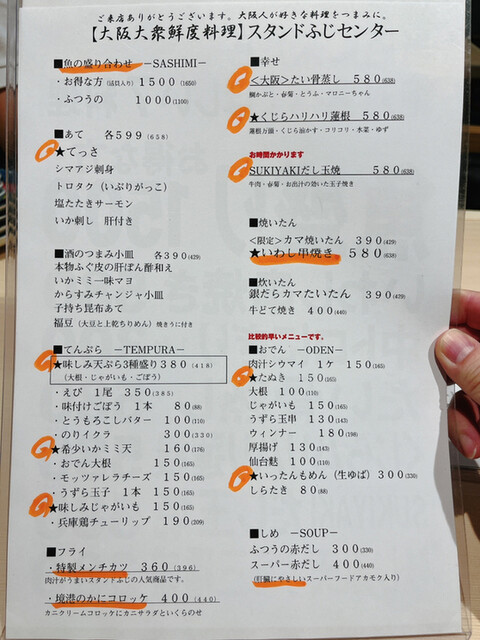 ご来店ありがとうございます。大阪人が好きな料理をつまみに。
【大阪大衆鮮度料理】スタンドふじセンター
■魚の盛り合わせ －SASHIMI－
・お得な方(詰日入り) 1500(1650)
・ふつうの 1000(1100)
■あて 各599(658)
★てっさ
シマアジ刺身
トロタク(いぶりがっこ)
塩たたきサーモン
いか刺し 肝付き
■酒のつまみ小皿 各390(429)
本物ふぐ皮の肝ぽん酢和え
いかミミ一味マヨ
からすみチャンジャ小皿
子持ち昆布あて
福豆(大豆と上乾ちりめん)焼きうに付き
■てんぷら －TEMPURA－
★味しみ天ぷら3種盛り380(418)
(大根・じゃがいも・ごぼう)
・えび 1尾 350(385)
・味付けごぼう 1本 80(88)
・とうもろこしバター 100(110)
・のりイクラ 300(330)
★希少いかミミ天 160(176)
・おでん大根 150(165)
・モッツァレラチーズ 150(165)
・うずら玉子 1本 150(165)
★味しみじゃがいも 150(165)
・兵庫鶏チューリップ 190(209)
■フライ
・特製メンチカツ 360(396)
肉汁がうまいスタンドふじの人気商品です。
・境港のかにコロッケ 400(440)
カニクリームコロッケにカニサラダといくらのせ
■幸せ
<大阪>たい骨蒸し 580(638)
鯛かぶと・春菊・とうふ・マロニーちゃん
★くじらハリハリ蓮根 580(638)
蓮根万頭・くじら油かす・コリコリ・水菜・ゆず
お時間かかります
SUKIYAKIだし玉焼 580(638)
牛肉・春菊・お出汁の効いた玉子焼き
■焼いたん
<限定>カマ焼いたん 390(429)
★いわし甲焼き 580(638)
■炊いたん
銀だらカマたいたん 390(429)
牛どて焼き 400(440)
比較的早いメニューです。
■おでん －ODEN－
肉汁シウマイ 1ケ 150(165)
★たぬき 150(165)
大根 100(110)
じゃがいも 150(165)
うずら玉串 130(143)
ウィンナー 180(198)
厚揚げ 130(143)
仙台麩 100(110)
★いったんもめん(生ゆば) 300(330)
しらたき 80(88)
■しめ －SOUP－
ふつうの赤だし 300(330)
スーパー赤だし 400(440)
(肝臓にやさしいスーパーフードアカモク入り)